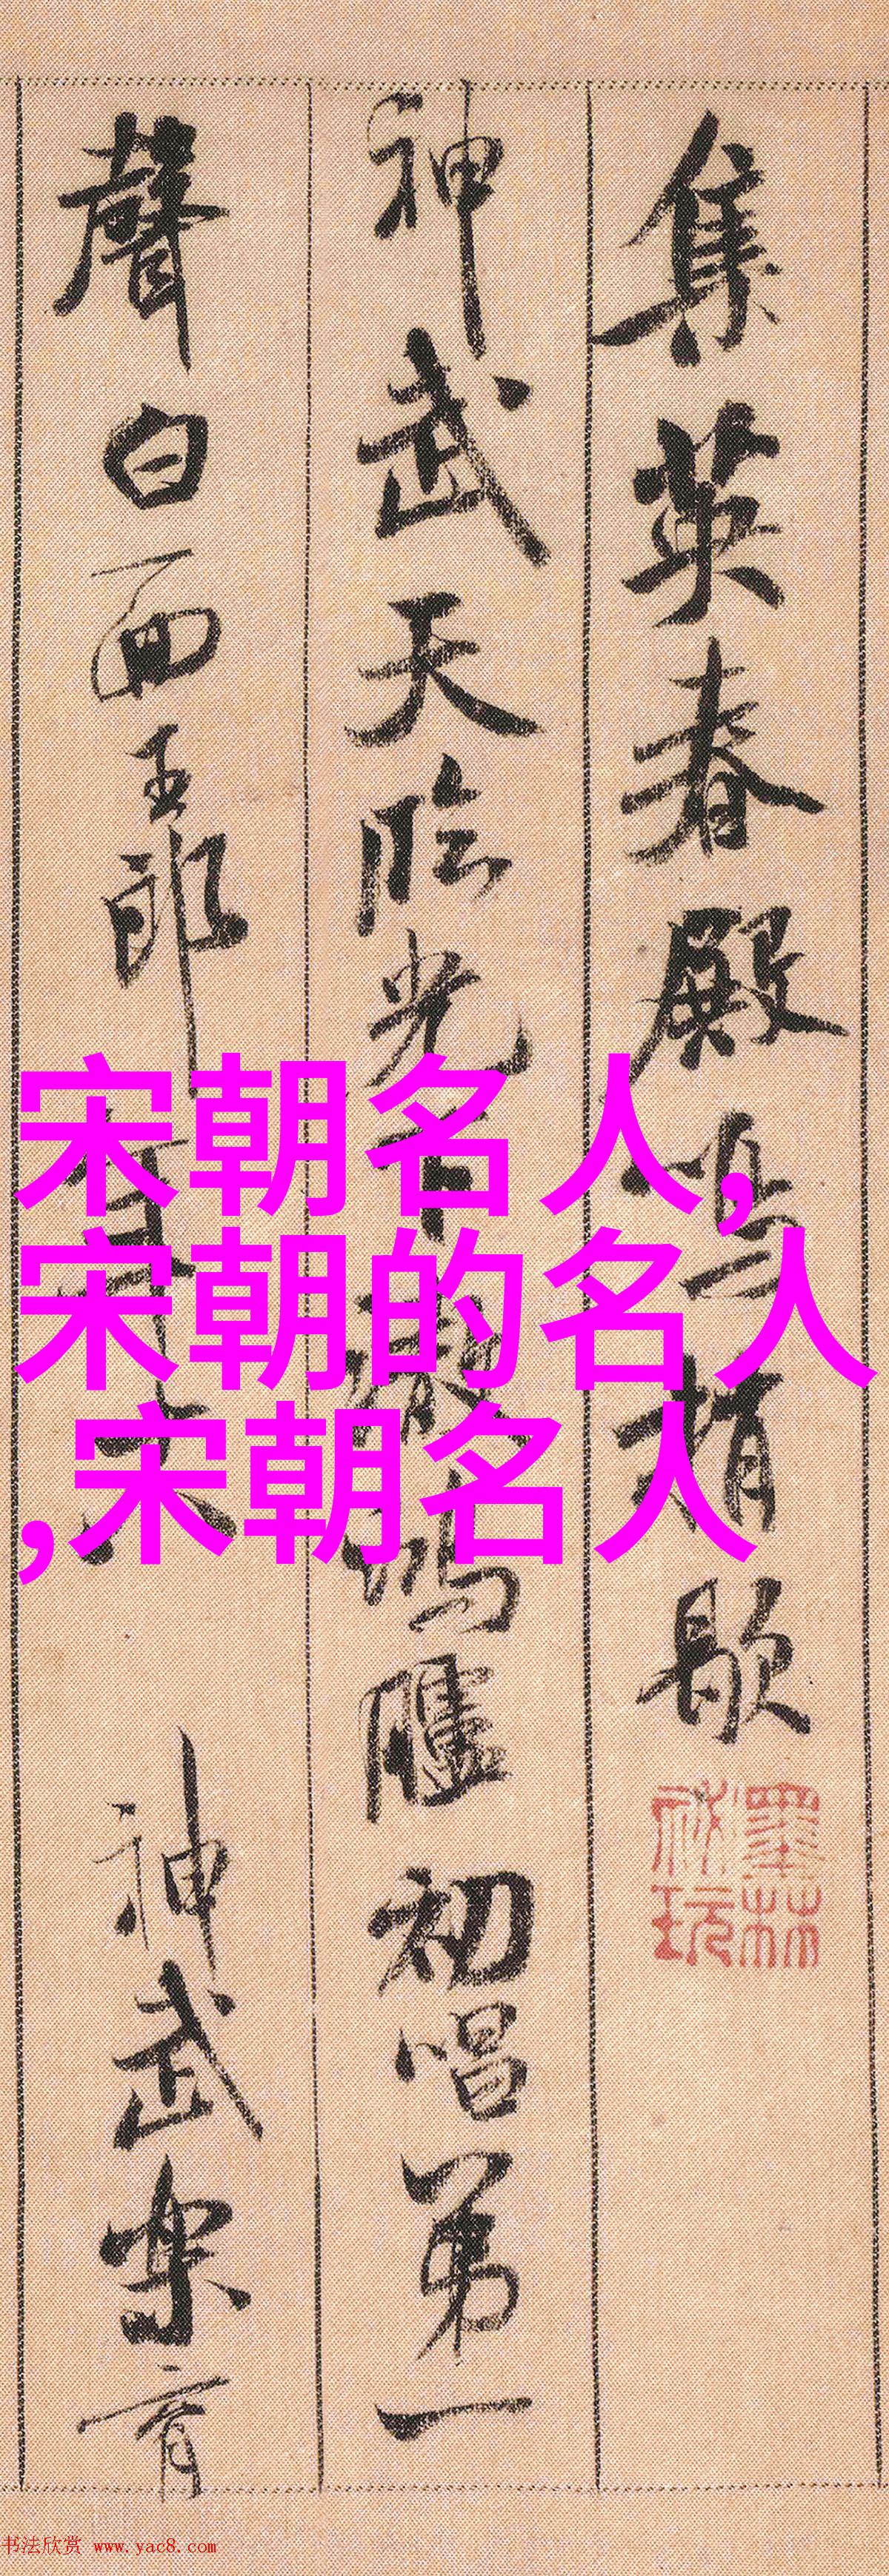 集英春殿鳴梢歇
神武天臨光下澈鴻臚初唱第一
聲白面王郎年十八神武樂育
墨林祕玩
宋朝名人,
宋朝的名人
,宋朝名人
书法欣赏 www.yac8.com